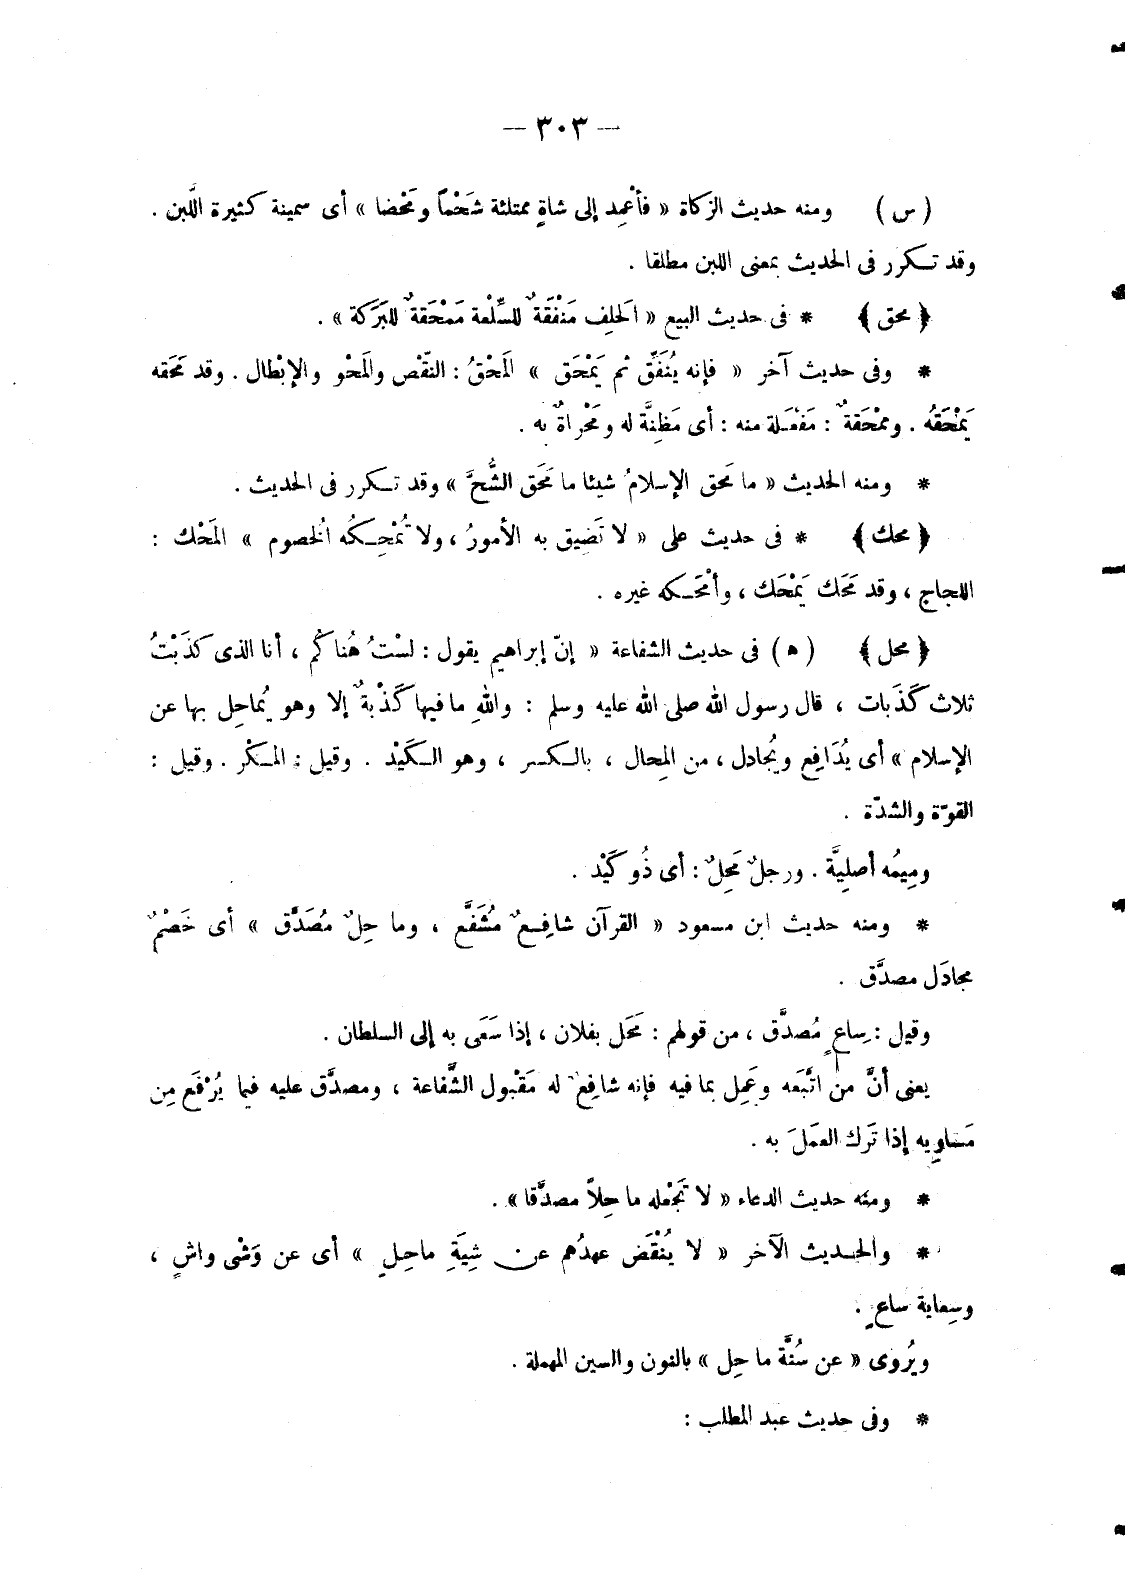 — ٣٠٣ —
( س ) ومنه حديث الزكاة « فأعْمِد إلى شاةٍ ممتلئة شَحْماً ومَحْضا » أى سمينة كثيرة اللَّبن .
وقد تكرر فى الحديث بمعنى اللبن مطلقا .
﴿ محق ﴾ * فى حديث البيع « الَحلِف مَنْفَقَةٌ للسِّلْعة مَمْحَقةٌ للبَرَكة » .
* وفى حديث آخر « فإنه يُنَفِّق ثم يَمْحَق » المَحْقُ : النَّقْص والمَحْو والإبْطال . وقد مَحَقه
يَمْحَقُه . ومَمْحَقةٌ : مَفْعَلة منه : أى مَظِنَّة له ومَحْراةٌ به .
* ومنه الحديث « ما مَحق الإسلامُ شيئا ما مَحَق الشُّحَّ » وقد تكرر فى الحديث .
﴿ محك ﴾ * فى حديث على « لا تَضِيق به الأمورُ ، ولا تُمْحِكُه الُخصوم » المَحْك :
اللجاج ، وقد مَحَك يَمْحَك ، وأمْحَكه غيره .
﴿ محل ﴾ ( ه ) فى حديث الشفاعة « إنّ إبراهيم يقول : لسْتُ هُناكُم ، أنا الذى كَذَبْتُ
ثلاث كَذَبات ، قال رسول الله صلى الله عليه وسلم : واللهِ ما فيها كَذْبةٌ إلا وهو يُماحِل بها عن
الإسلام » أى يُدَافِع ويُجادل ، من المِحال ، بالكسر ، وهو الكَيْد . وقيل : المكْر . وقيل :
القوّة والشدّة .
ومِيمُه أصلِيَّة . ورجلٌ مَحِلٌ : أى ذُو كَيْد .
* ومنه حديث ابن مسعود « القرآن شافِعٌ مُشَفَّع ، وما حِلٌ مُصَدَّق » أى خَصْمٌ
مجادَل مصدَّق .
وقيل : ساعٍ مُصدَّق ، من قولهم : مَحَل بفلان ، إذا سَعَى به إلى السلطان .
يعنى أنَّ من اتَّبَعه وعَمِل بما فيه فإنه شافِعٌ له مَقْبول الشَّفاعة ، ومصدَّق عليه فيما يُرْفَع مِن
مَساوِيه إذا تَرك العمَلَ به .
* ومنه حديث الدعاء « لا تَجْعله ما حِلاً مصدَّقا » .
* والحديث الآخر « لا يُنْقَض عهدُهم عن شِيَةِ ماحِلٍ » أى عن وَشْى واشٍ ،
وسِعاية ساعٍ .
ويُروى « عن سُنَّة ما حِل » بالنون والسين المهملة .
* وفى حديث عبد المطلب :